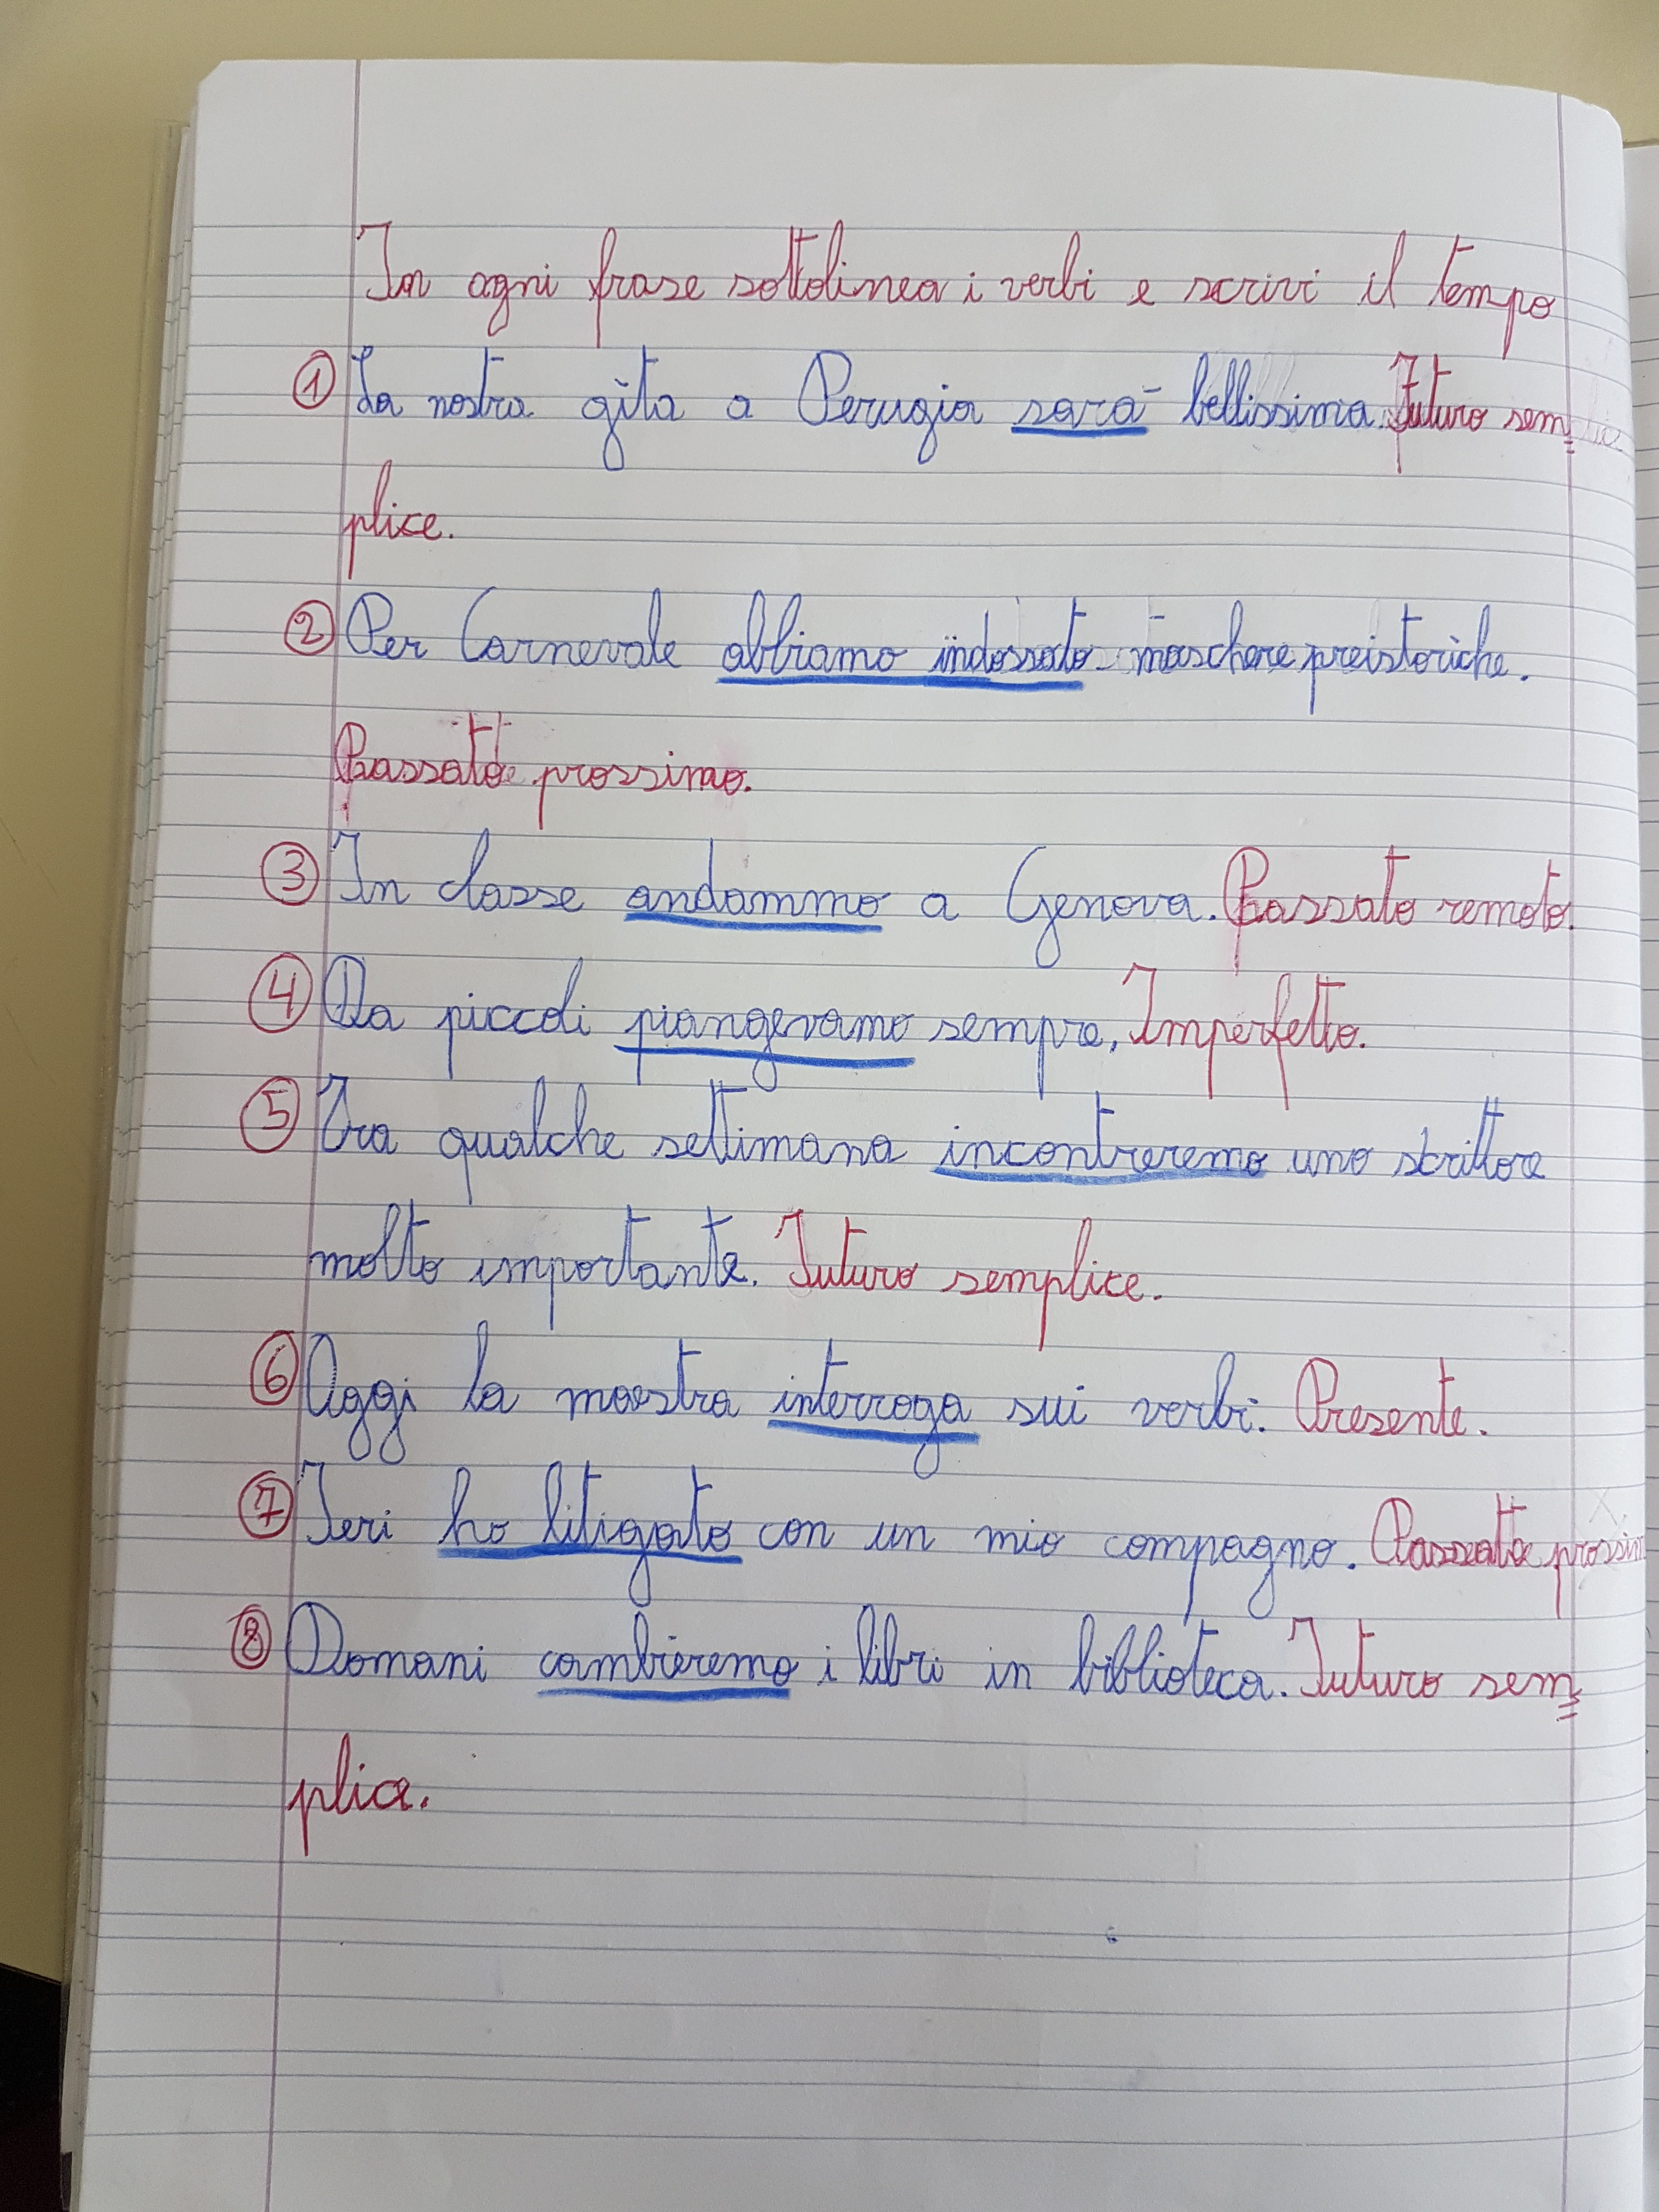 In ogni frase sottolinea i verbi e scrivi il tempo
1 La nostra gita a Perugia sarà bellissima. Futuro sem
plice.
2 Per Carnevale abbiamo indossato maschere preistoriche.
Passato prossimo.
3 In classe andammo a Genova. Passato remoto.
4 Da piccoli piangevamo sempre, Imperfetto.
5 Tra qualche settimana incontreremo uno scrittore
molto importante. Futuro semplice.
6 Oggi la maestra interroga sui verbi. Presente.
7 Ieri ho litigato con un mio compagno. Passato prossim
8 Domani cambieremo i libri in biblioteca. Futuro sem
plice.